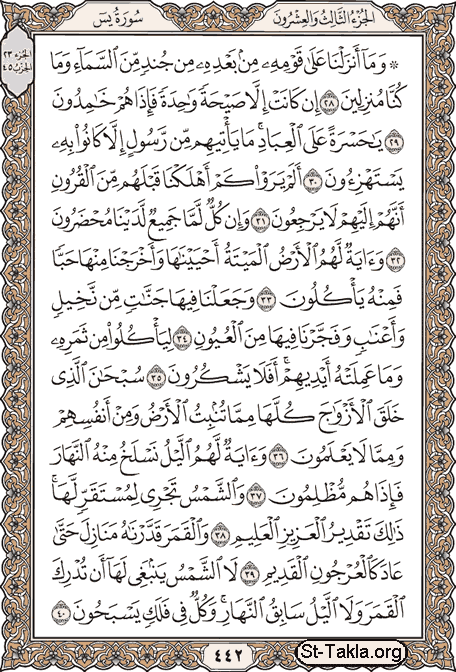 الجزء الثالث والعشرون
سورة يس
الجزء ٢٣
الحزب ٤٥
۞ وَمَآ أَنزَلْنَا عَلَىٰ قَوْمِهِۦ مِنۢ بَعْدِهِۦ مِن جُندٍ مِّنَ ٱلسَّمَآءِ وَمَا
كُنَّا مُنزِلِينَ ٢٨ إِن كَانَتْ إِلَّا صَيْحَةً وَٰحِدَةً فَإِذَا هُمْ خَـٰمِدُونَ
٢٩ يَـٰحَسْرَةً عَلَى ٱلْعِبَادِ ۚ مَا يَأْتِيهِم مِّن رَّسُولٍ إِلَّا كَانُوا۟ بِهِۦ
يَسْتَهْزِءُونَ ٣٠ أَلَمْ يَرَوْا۟ كَمْ أَهْلَكْنَا قَبْلَهُم مِّنَ ٱلْقُرُونِ
أَنَّهُمْ إِلَيْهِمْ لَا يَرْجِعُونَ ٣١ وَإِن كُلٌّ لَّمَّا جَمِيعٌ لَّدَيْنَا مُحْضَرُونَ
٣٢ وَءَايَةٌ لَّهُمُ ٱلْأَرْضُ ٱلْمَيْتَةُ أَحْيَيْنَـٰهَا وَأَخْرَجْنَا مِنْهَا حَبًّا
فَمِنْهُ يَأْكُلُونَ ٣٣ وَجَعَلْنَا فِيهَا جَنَّـٰتٍ مِّن نَّخِيلٍ
وَأَعْنَـٰبٍ وَفَجَّرْنَا فِيهَا مِنَ ٱلْعُيُونِ ٣٤ لِيَأْكُلُوا۟ مِن ثَمَرِهِۦ
وَمَا عَمِلَتْهُ أَيْدِيهِمْ ۖ أَفَلَا يَشْكُرُونَ ٣٥ سُبْحَـٰنَ ٱلَّذِى
خَلَقَ ٱلْأَزْوَٰجَ كُلَّهَا مِمَّا تُنۢبِتُ ٱلْأَرْضُ وَمِنْ أَنفُسِهِمْ
وَمِمَّا لَا يَعْلَمُونَ ٣٦ وَءَايَةٌ لَّهُمُ ٱلَّيْلُ نَسْلَخُ مِنْهُ ٱلنَّهَارَ
فَإِذَا هُم مُّظْلِمُونَ ٣٧ وَٱلشَّمْسُ تَجْرِى لِمُسْتَقَرٍّ لَّهَا ۚ
ذَٰلِكَ تَقْدِيرُ ٱلْعَزِيزِ ٱلْعَلِيمِ ٣٨ وَٱلْقَمَرَ قَدَّرْنَـٰهُ مَنَازِلَ حَتَّىٰ
عَادَ كَٱلْعُرْجُونِ ٱلْقَدِيمِ ٣٩ لَا ٱلشَّمْسُ يَنۢبَغِى لَهَآ أَن تُدْرِكَ
ٱلْقَمَرَ وَلَا ٱلَّيْلُ سَابِقُ ٱلنَّهَارِ ۚ وَكُلٌّ فِى فَلَكٍ يَسْبَحُونَ ٤٠
٤٤٢
St-Takla.org